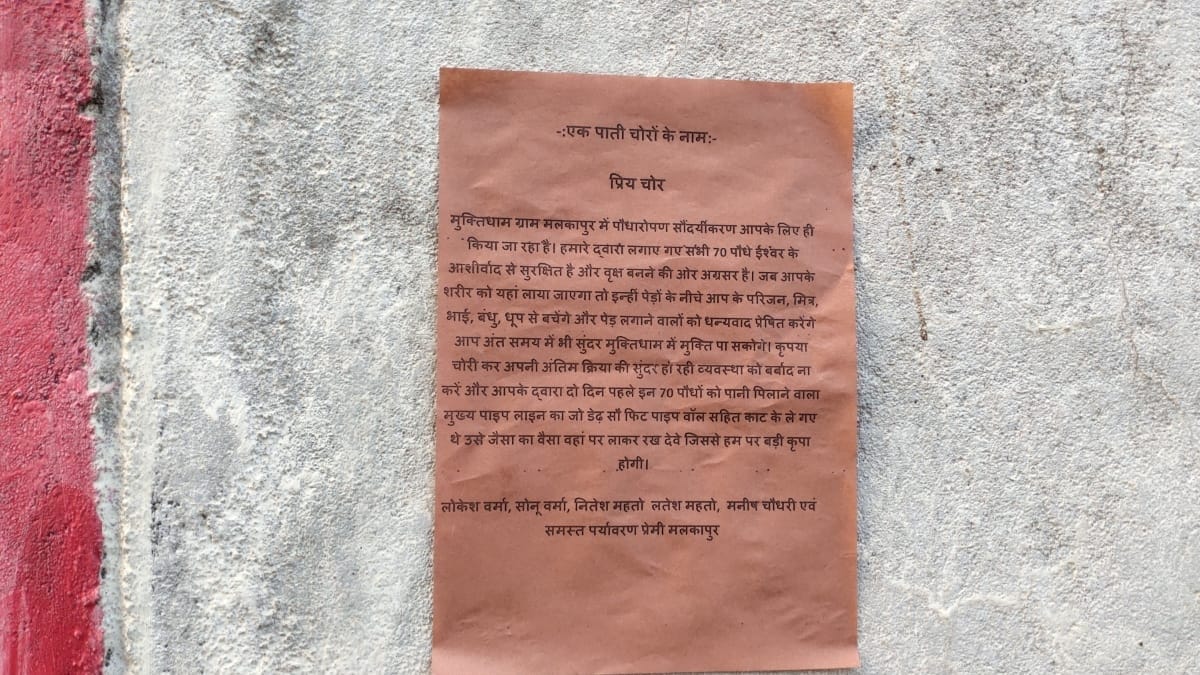 -:एक पाती चोरों के नाम:-
प्रिय चोर
मुक्तिधाम ग्राम मलकापुर में पौधारोपण सौंदर्यीकरण आपके लिए ही
किया जा रहा है। हमारे द्वारा लगाए गए सभी 70 पौधे ईश्वर के
आशीर्वाद से सुरक्षित है और वृक्ष बनने की ओर अग्रसर है। जब आपके
शरीर को यहां लाया जाएगा तो इन्हीं पेड़ों के नीचे आप के परिजन, मित्र,
भाई, बंधु, धूप से बचेंगे और पेड़ लगाने वालों को धन्यवाद प्रेषित करेंगे
आप अंत समय में भी सुंदर मुक्तिधाम में मुक्ति पा सकोगे। कृपया
चोरी कर अपनी अंतिम क्रिया की सुंदर हो रही व्यवस्था को बर्बाद ना
करें और आपके द्वारा दो दिन पहले इन 70 पौधों को पानी पिलाने वाला
मुख्य पाइप लाइन का जो डेढ़ सौ फिट पाइप वॉल सहित काट के ले गए
थे उसे जैसा का वैसा वहां पर लाकर रख देवे जिससे हम पर बड़ी कृपा
होगी।
लोकेश वर्मा, सोनू वर्मा, नितेश महतो लतेश महतो, मनीष चौधरी एवं
समस्त पर्यावरण प्रेमी मलकापुर